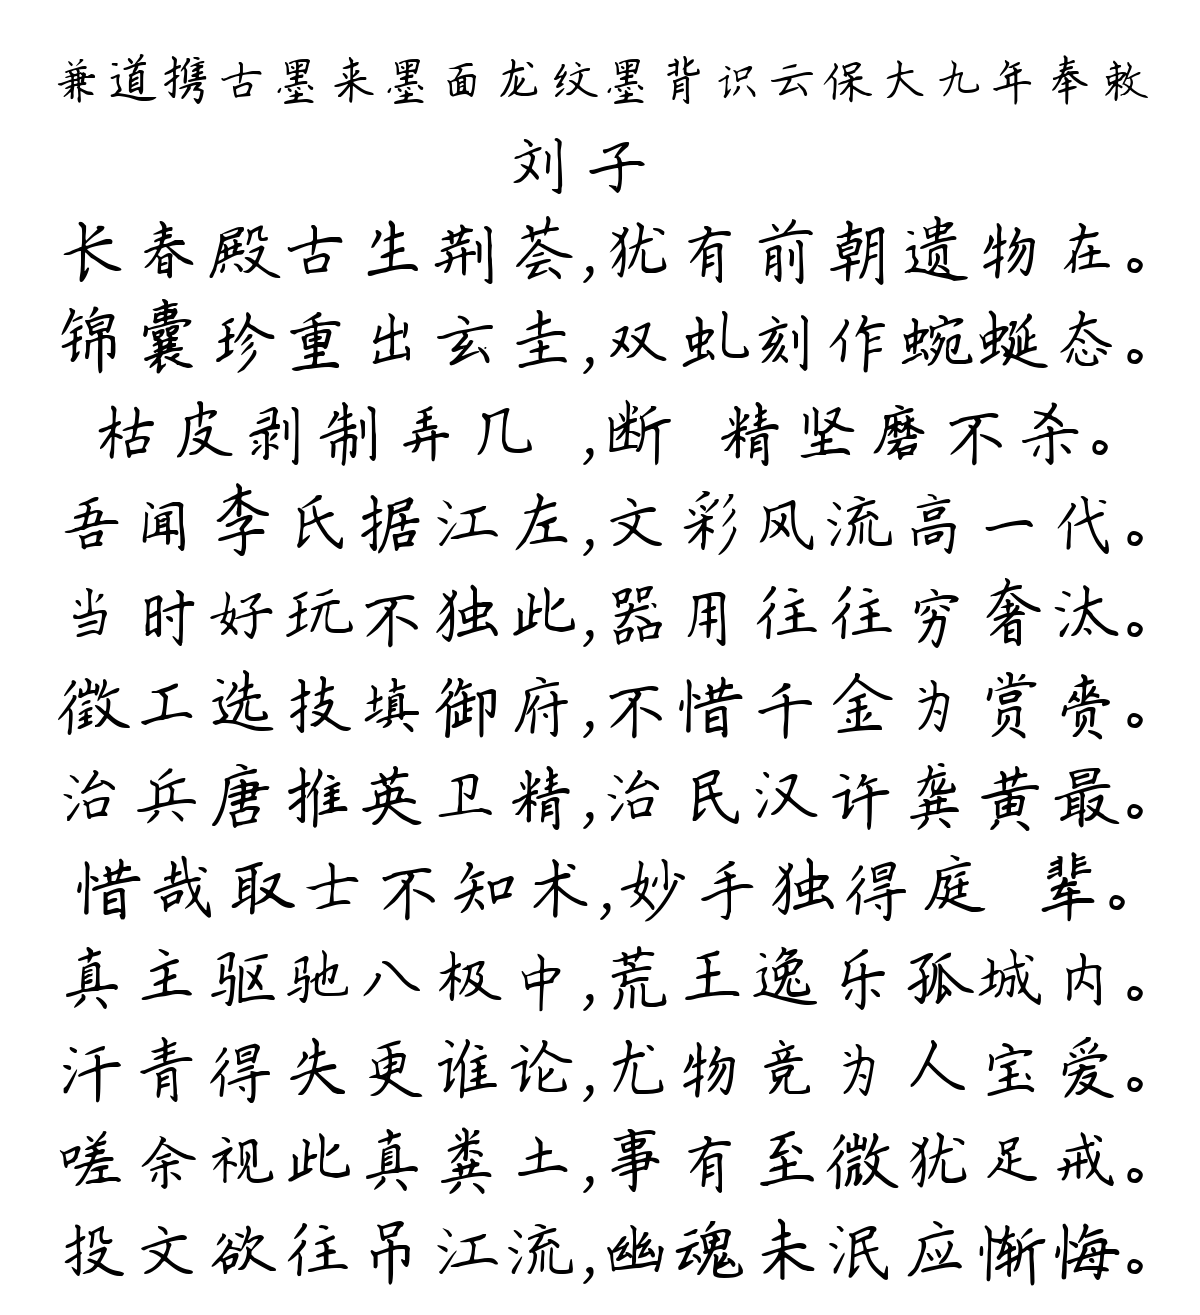 兼道携古墨来墨面龙纹墨背识云保大九年奉敕
刘子
长春殿古生荆荟,犹有前朝遗物在。
锦囊珍重出玄圭,双虬刻作蜿蜒态。
枯皮剥制弄几 ,断 精坚磨不杀。
吾闻李氏据江左,文彩风流高一代。
当时好玩不独此,器用往往穷奢汰。
徵工选技填御府,不惜千金为赏赉。
治兵唐推英卫精,治民汉许龚黄最。
惜哉取士不知术,妙手独得庭 辈。
真主驱驰八极中,荒王逸乐孤城内。
汗青得失更谁论,尤物竞为人宝爱。
嗟余视此真粪土,事有至微犹足戒。
投文欲往吊江流,幽魂未泯应惭悔。